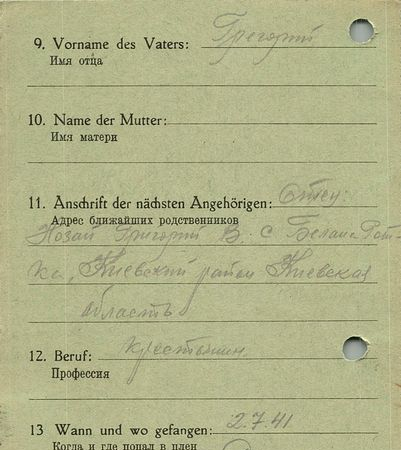 9. Vorname des Vaters: Григорий
Имя отца
10. Name der Mutter:
Имя матери
11. Anschrift der nächsten Angehörigen: Отец:
Адрес ближайших родственников
Григорий В. с
Киевский район Киевская
область
12. Beruf: крестьянин
Профессия
13 Wann und wo gefangen: 2.7.41
Когда и где попал в плен